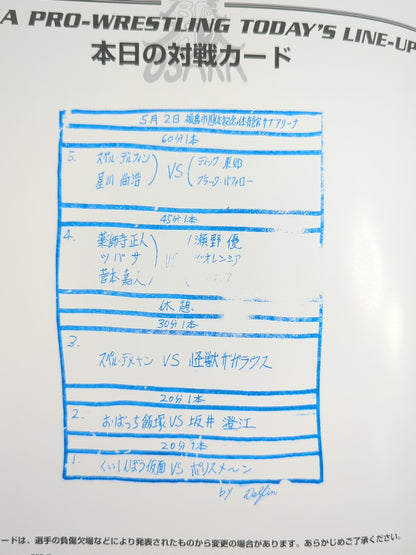 A PRO-WRESTLING TODAY'S LINE-UP
OSAKA
本日の対戦カード
5月2日 サブアリーナ
60分1本
5. スペル・デルフィン
星川 尚浩
VS
ディック・東郷
ブラック・バファロー
45分1本
4. 薬師寺正人
ツバサ
菅本嘉人
VS
瀬野 優
休憩
30分1本
3. スペル・デメキン VS 怪獣サガラウス
20分1本
2. おばっち飯塚 VS 坂井 澄江
20分1本
1. くいしんぼう仮面 VS ポリスメ〜ン
by Delfin
ードは、選手の負傷欠場などにより発表されたものから変更の場合があります。あらかじめご了承ください。